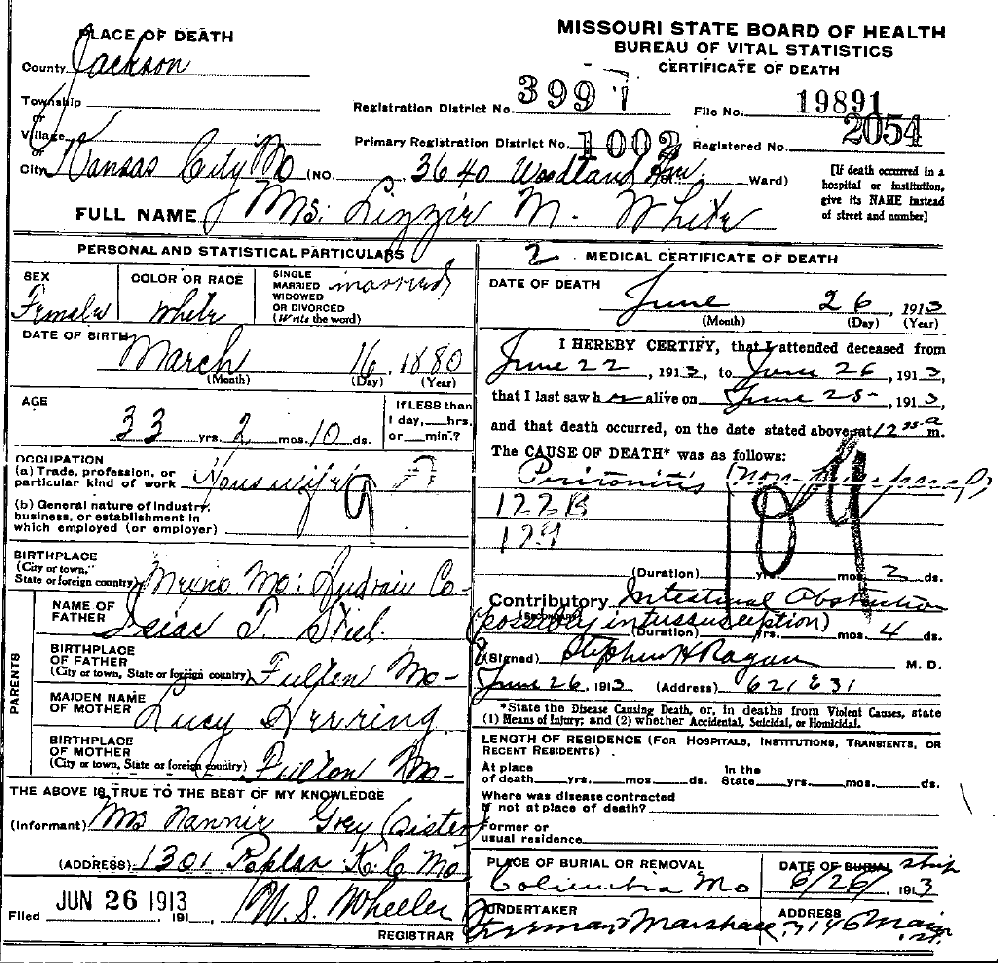 MISSOURI STATE BOARD OF HEALTH
BUREAU OF VITAL STATISTICS
CERTIFICATE OF DEATH
PLACE OF DEATH
County Jackson
Township
or
Village
or
City Kansas City Mo (NO. 3640 Woodland Ave. Ward)
Registration District No. 399
File No. 19891
Primary Registration District No. 1002
Registered No. 2054
[If death occurred in a
hospital or institution,
give its NAME instead
of street and number]
FULL NAME Mrs. Lizzie M. White
PERSONAL AND STATISTICAL PARTICULARS
SEX
Female
COLOR OR RACE
White
SINGLE
MARRIED
WIDOWED
OR DIVORCED
(Write the word)
married
DATE OF BIRTH
March 16, 1880
(Month) (Day) (Year)
AGE
33 yrs. 2 mos. 10 ds.
If LESS than
1 day, hrs.
or min.?
OCCUPATION
(a) Trade, profession, or
particular kind of work Housewife
(b) General nature of industry,
business, or establishment in
which employed (or employer)
9
BIRTHPLACE
(City or town,
State or foreign country) Mo: Audrain Co
PARENTS
NAME OF
FATHER
Isiac T.
BIRTHPLACE
OF FATHER
(City or town, State or foreign country) Fulton Mo
MAIDEN NAME
OF MOTHER
Lucy Herring
BIRTHPLACE
OF MOTHER
(City or town, State or foreign country) Fulton Mo
THE ABOVE IS TRUE TO THE BEST OF MY KNOWLEDGE
(Informant) Mrs Nannie Grey (Sister
(ADDRESS) 1301 Poplar K.C. Mo
Filed JUN 26 1913 191 W. S. Wheeler
REGISTRAR
2 MEDICAL CERTIFICATE OF DEATH
DATE OF DEATH
June 26, 1913
(Month) (Day) (Year)
I HEREBY CERTIFY, that I attended deceased from
June 22, 1913, to June 26, 1913,
that I last saw her alive on June 25, 1913,
and that death occurred, on the date stated above, at 12 a m.
The CAUSE OF DEATH* was as follows:
Peritonitis (non
122B
109
(Duration) yrs. mos. 3 ds.
Contributory Intestinal Obstruction
(SECONDARY)
(possibly intussusception)
(Duration) yrs. mos. 4 ds.
(Signed) Stephen H Ragan M. D.
June 26, 1913 (Address)
*State the Disease Causing Death, or, in deaths from Violent Causes, state
(1) Means of Injury; and (2) whether Accidental, Suicidal, or Homicidal.
LENGTH OF RESIDENCE (FOR HOSPITALS, INSTITUTIONS, TRANSIENTS, OR
RECENT RESIDENTS)
At place
of death yrs. mos. ds.
In the
State yrs. mos. ds.
Where was disease contracted
If not at place of death?
Former or
usual residence
PLACE OF BURIAL OR REMOVAL
Columbia Mo
DATE OF BURIAL ship
6/26/ 1913
UNDERTAKER
Freeman & Marshall
ADDRESS
3146 Main
st.